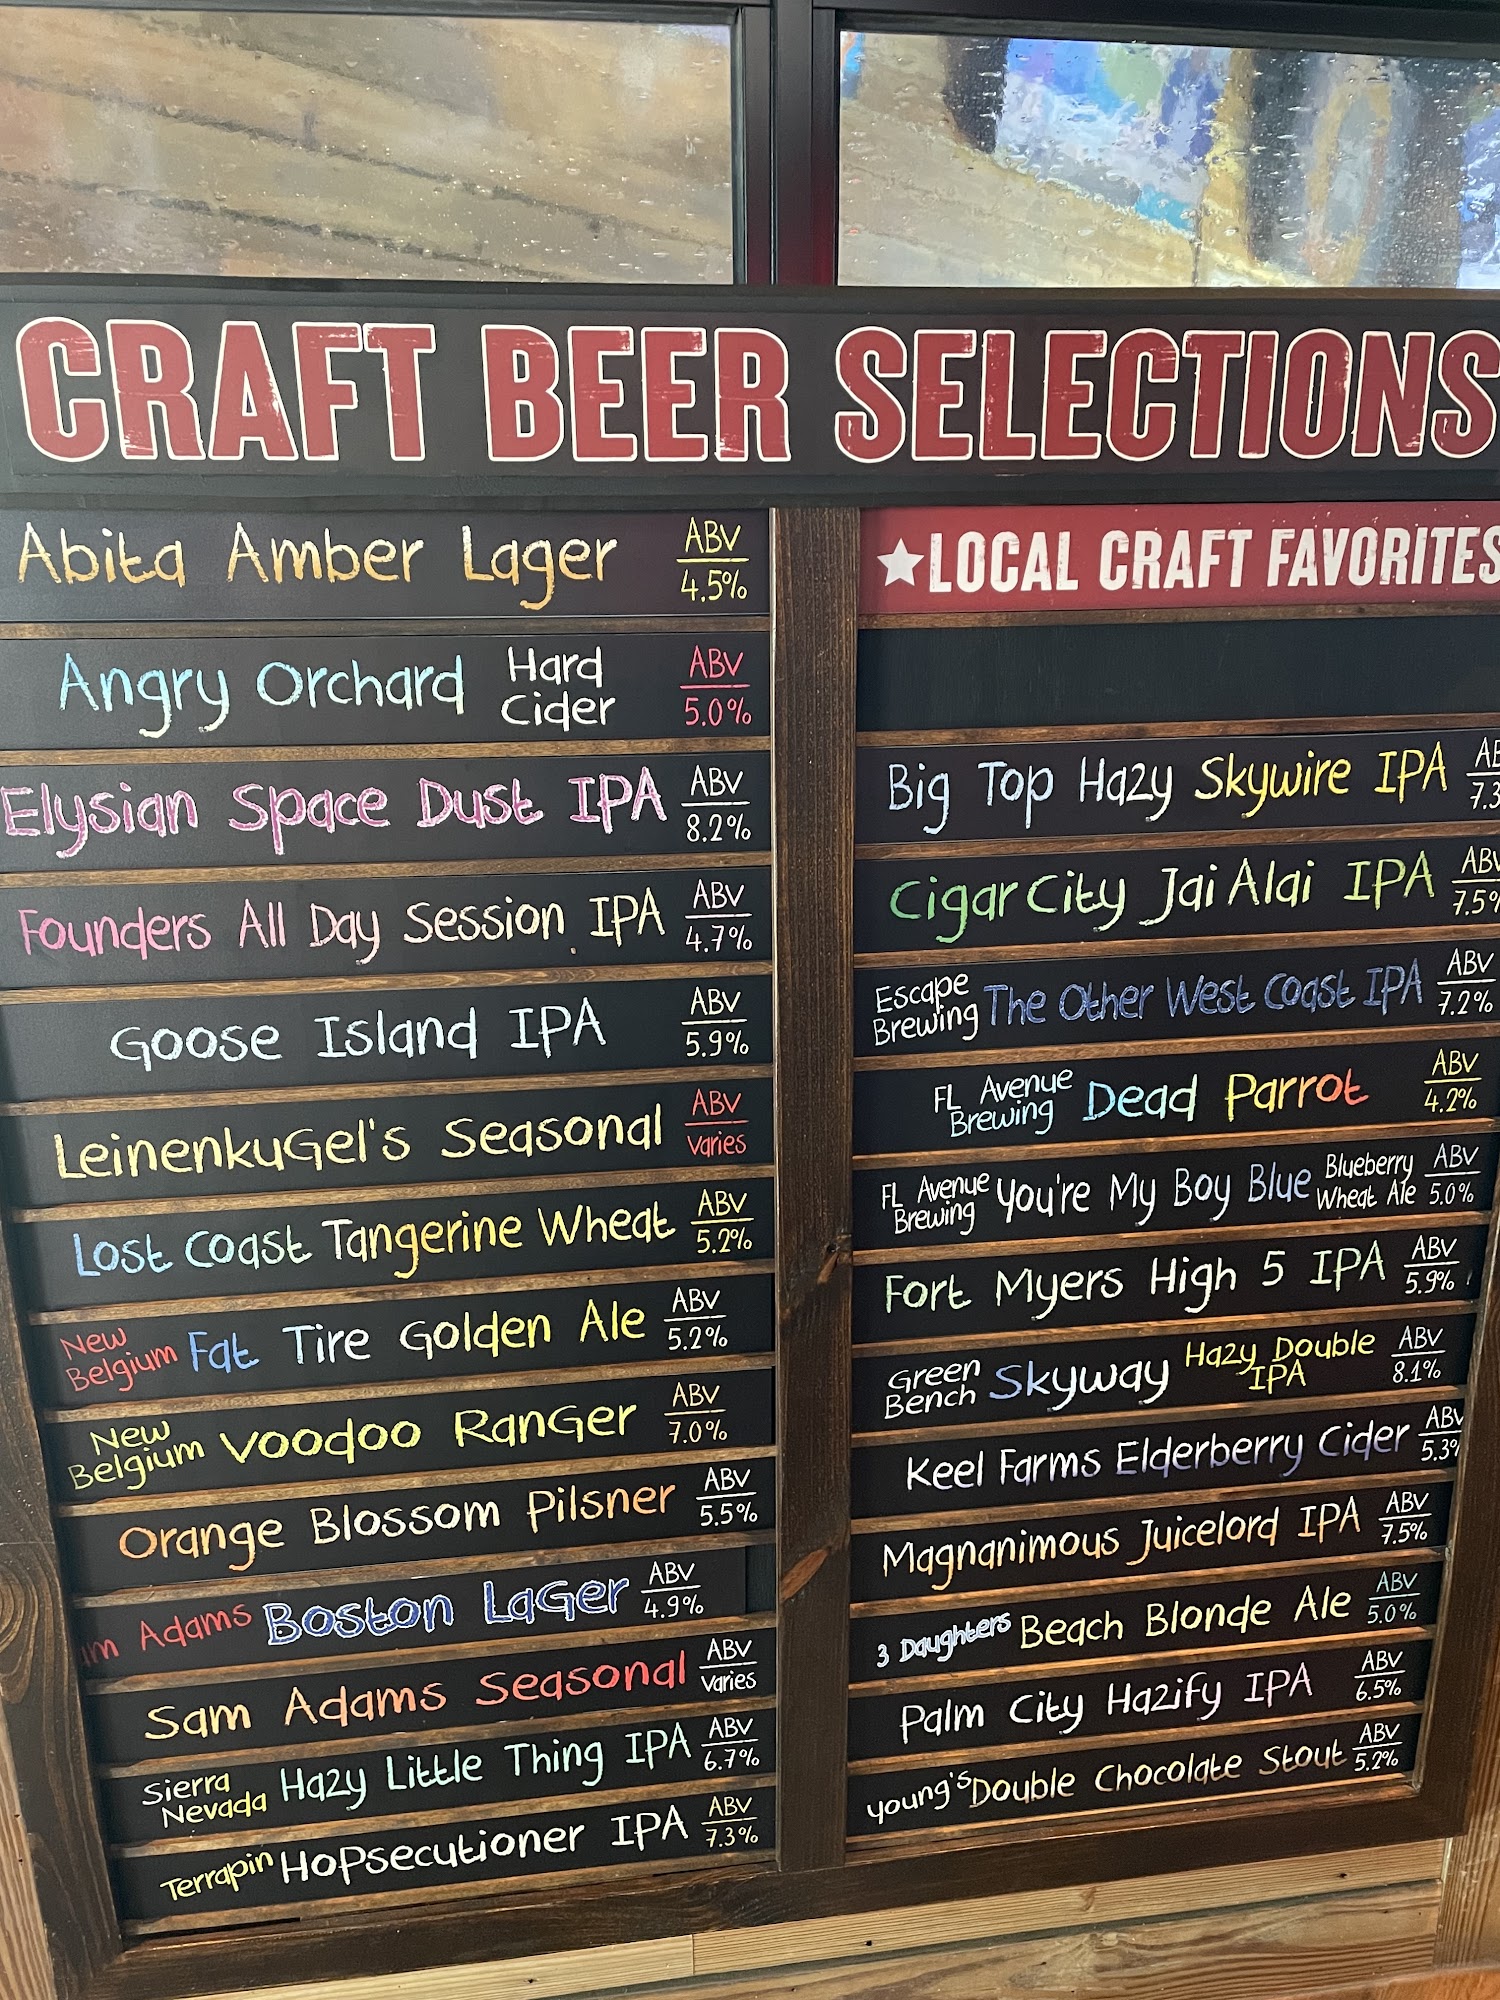 CRAFT BEER SELECTIONS
Abita Amber Lager ABV 4.5%
Angry Orchard Hard Cider ABV 5.0%
Elysian Space Dust IPA ABV 8.2%
Founders All Day Session IPA ABV 4.7%
Goose Island IPA ABV 5.9%
LeinenkuGel's Seasonal ABV varies
Lost Coast Tangerine Wheat ABV 5.2%
New Belgium Fat Tire Golden Ale ABV 5.2%
New Belgium Voodoo RanGer ABV 7.0%
Orange Blossom Pilsner ABV 5.5%
m Adams Boston LaGer ABV 4.9%
Sam Adams Seasonal ABV varies
Sierra Nevada Hazy Little Thing IPA ABV 6.7%
Terrapin HoPsecutioner IPA ABV 7.3%
★LOCAL CRAFT FAVORITES
Big Top Hazy Skywire IPA AB 7.3
Cigar City Jai Alai IPA ABV 7.5%
Escape Brewing The Other West Coast IPA ABV 7.2%
FL Avenue Brewing Dead Parrot ABV 4.2%
FL Avenue Brewing You're My Boy Blue Blueberry Wheat Ale ABV 5.0%
Fort Myers High 5 IPA ABV 5.9%
Green Bench Skyway Hazy Double IPA ABV 8.1%
Keel Farms Elderberry Cider ABV 5.3%
Magnanimous Juicelord IPA ABV 7.5%
3 Daughters Beach Blonde Ale ABV 5.0%
Palm City Hazify IPA ABV 6.5%
young's Double Chocolate Stout ABV 5.2%